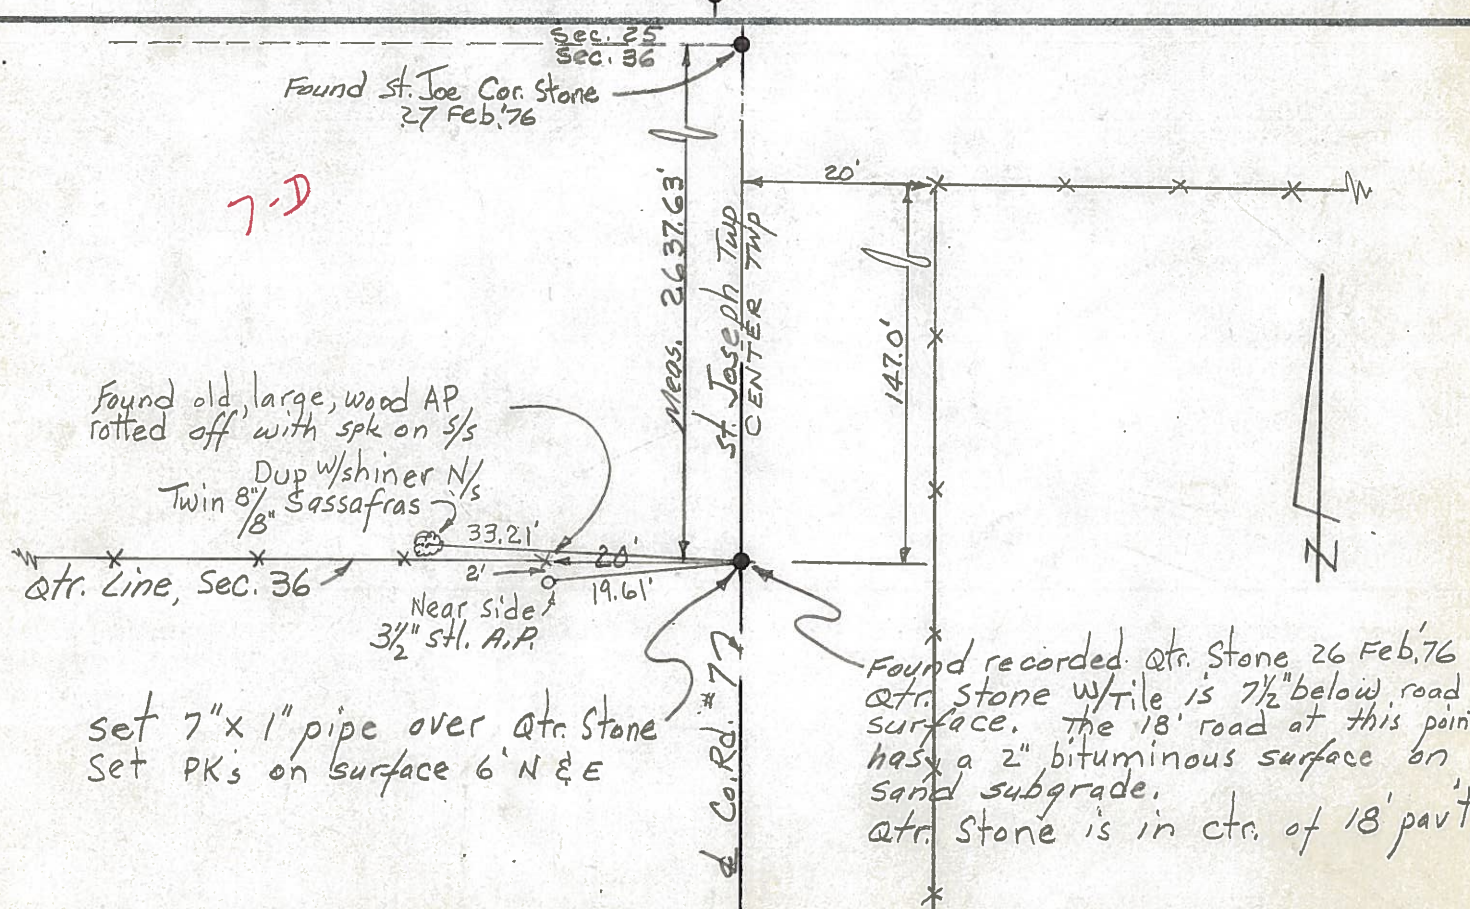 Sec. 25
Sec. 36
Found St. Joe Cor. Stone
27 Feb.'76
7-D
20'
Meas. 2637.63'
St. Joseph Twp
CENTER TWP
147.0'
Found old, large, wood AP
rotted off with spk on S/s
Dup W/shiner N/s
Twin 8"/8" Sassafras
33.21'
20'
2'
19.61'
Qtr. Line, Sec. 36
Near side
3½" Stl. A.P.
N
set 7" x 1" pipe over Qtr. Stone
Set PKs on surface 6' N & E
Co. Rd. #77
Found recorded Qtr. Stone 26 Feb.'76
Qtr. Stone W/Tile is 7½" below road
surface. The 18' road at this poin
has a 2" bituminous surface on
sand subgrade.
Qtr. Stone is in ctr. of 18' pav't